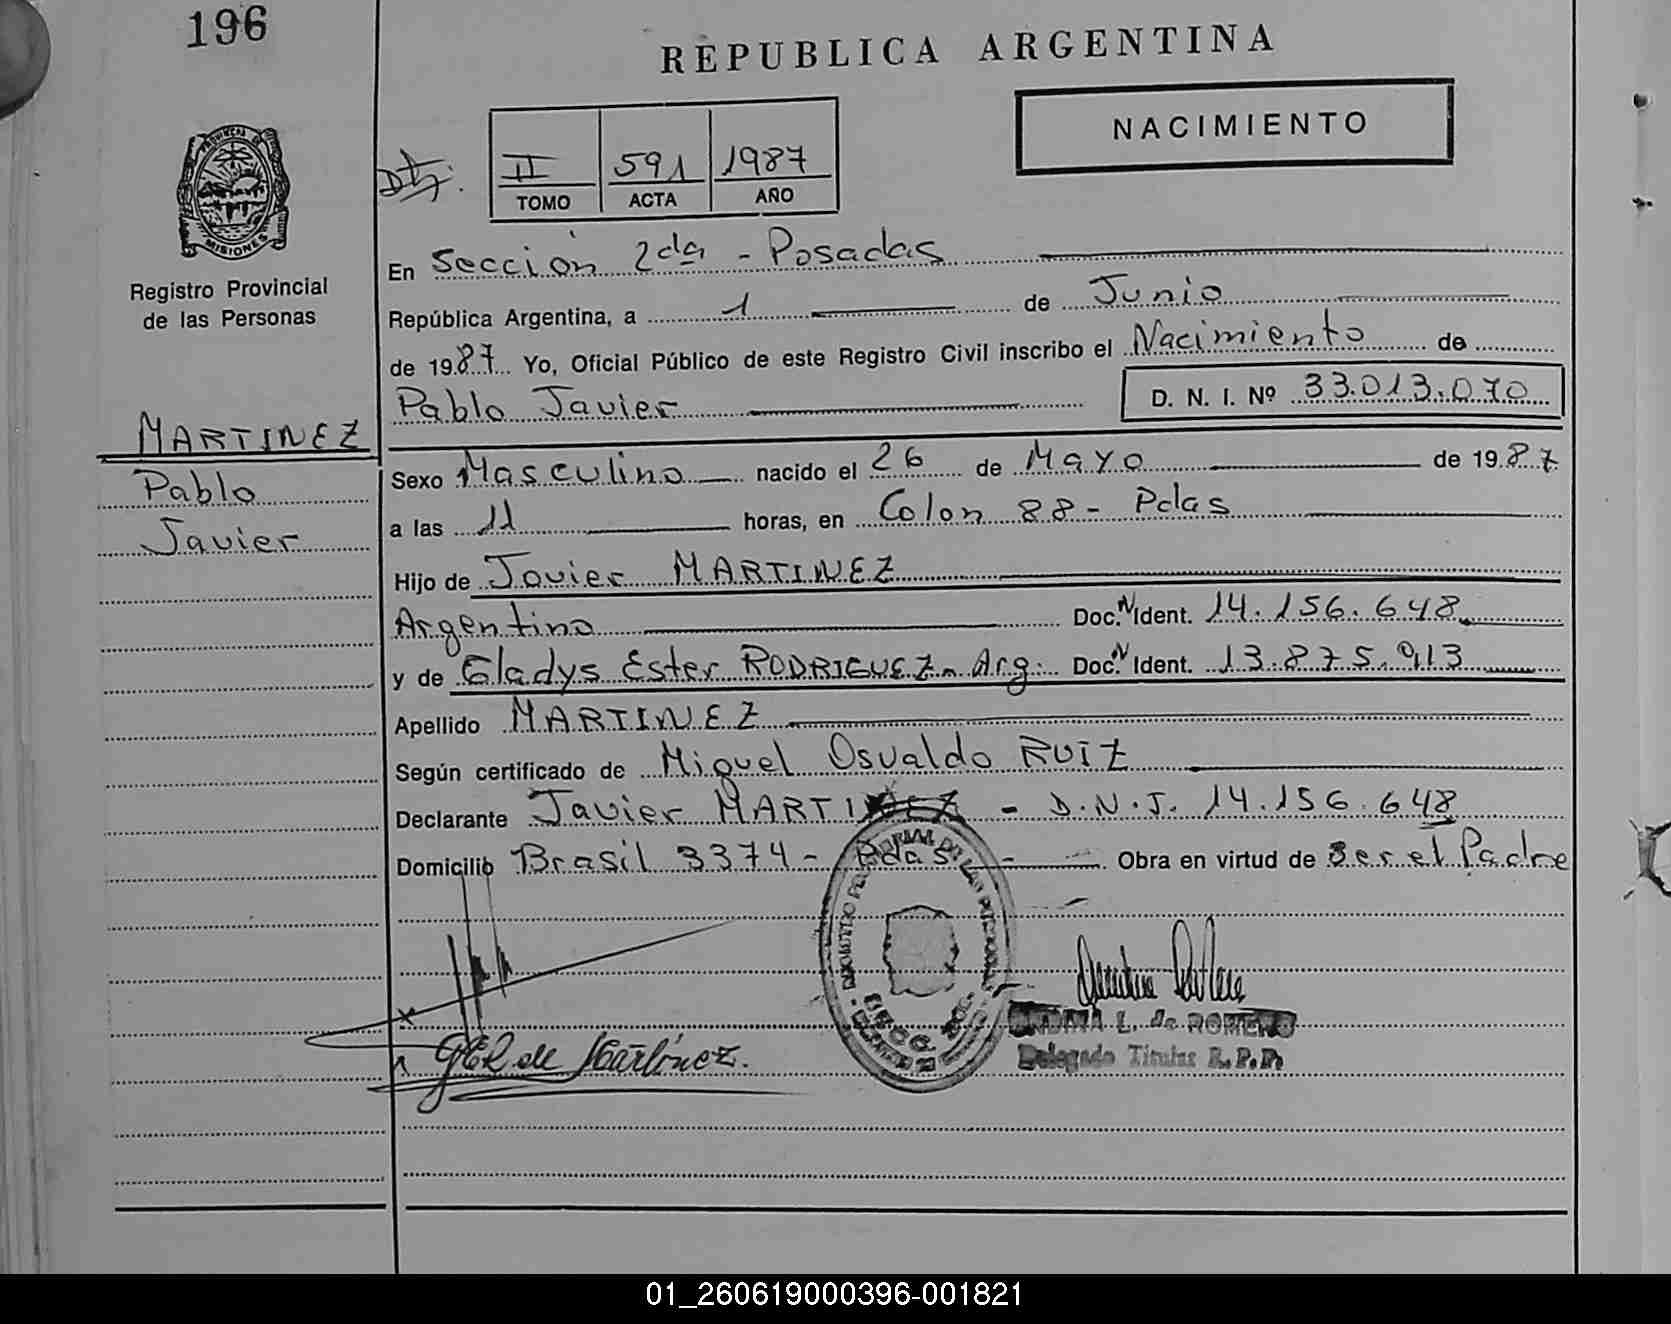 196
REPUBLICA ARGENTINA
NACIMIENTO
II 591 1987
TOMO ACTA AÑO
PROVINCIA DE MISIONES
Registro Provincial
de las Personas
MARTINEZ
Pablo
Javier
En Sección 2da - Posadas
República Argentina, a 1 de Junio
de 1987 Yo, Oficial Público de este Registro Civil inscribo el Nacimiento de
Pablo Javier D. N. I. Nº 33.013.070
Sexo Masculino nacido el 26 de Mayo de 1987
a las 11 horas, en Colon 88 - Pdas
Hijo de Javier MARTINEZ
Argentino Doc. N Ident. 14.156.648
y de Gladys Ester RODRIGUEZ - Arg. Doc. N Ident. 13.875.913
Apellido MARTINEZ
Según certificado de Miguel Osvaldo RUIZ
Declarante Javier MARTINEZ - D.N.I. 14.156.648
Domicilio Brasil 3374 - Pdas - Obra en virtud de Ser el Padre
GER de Martínez.
L. de ROMERO
Delegado Titular R.P.P.
01_260619000396-001821